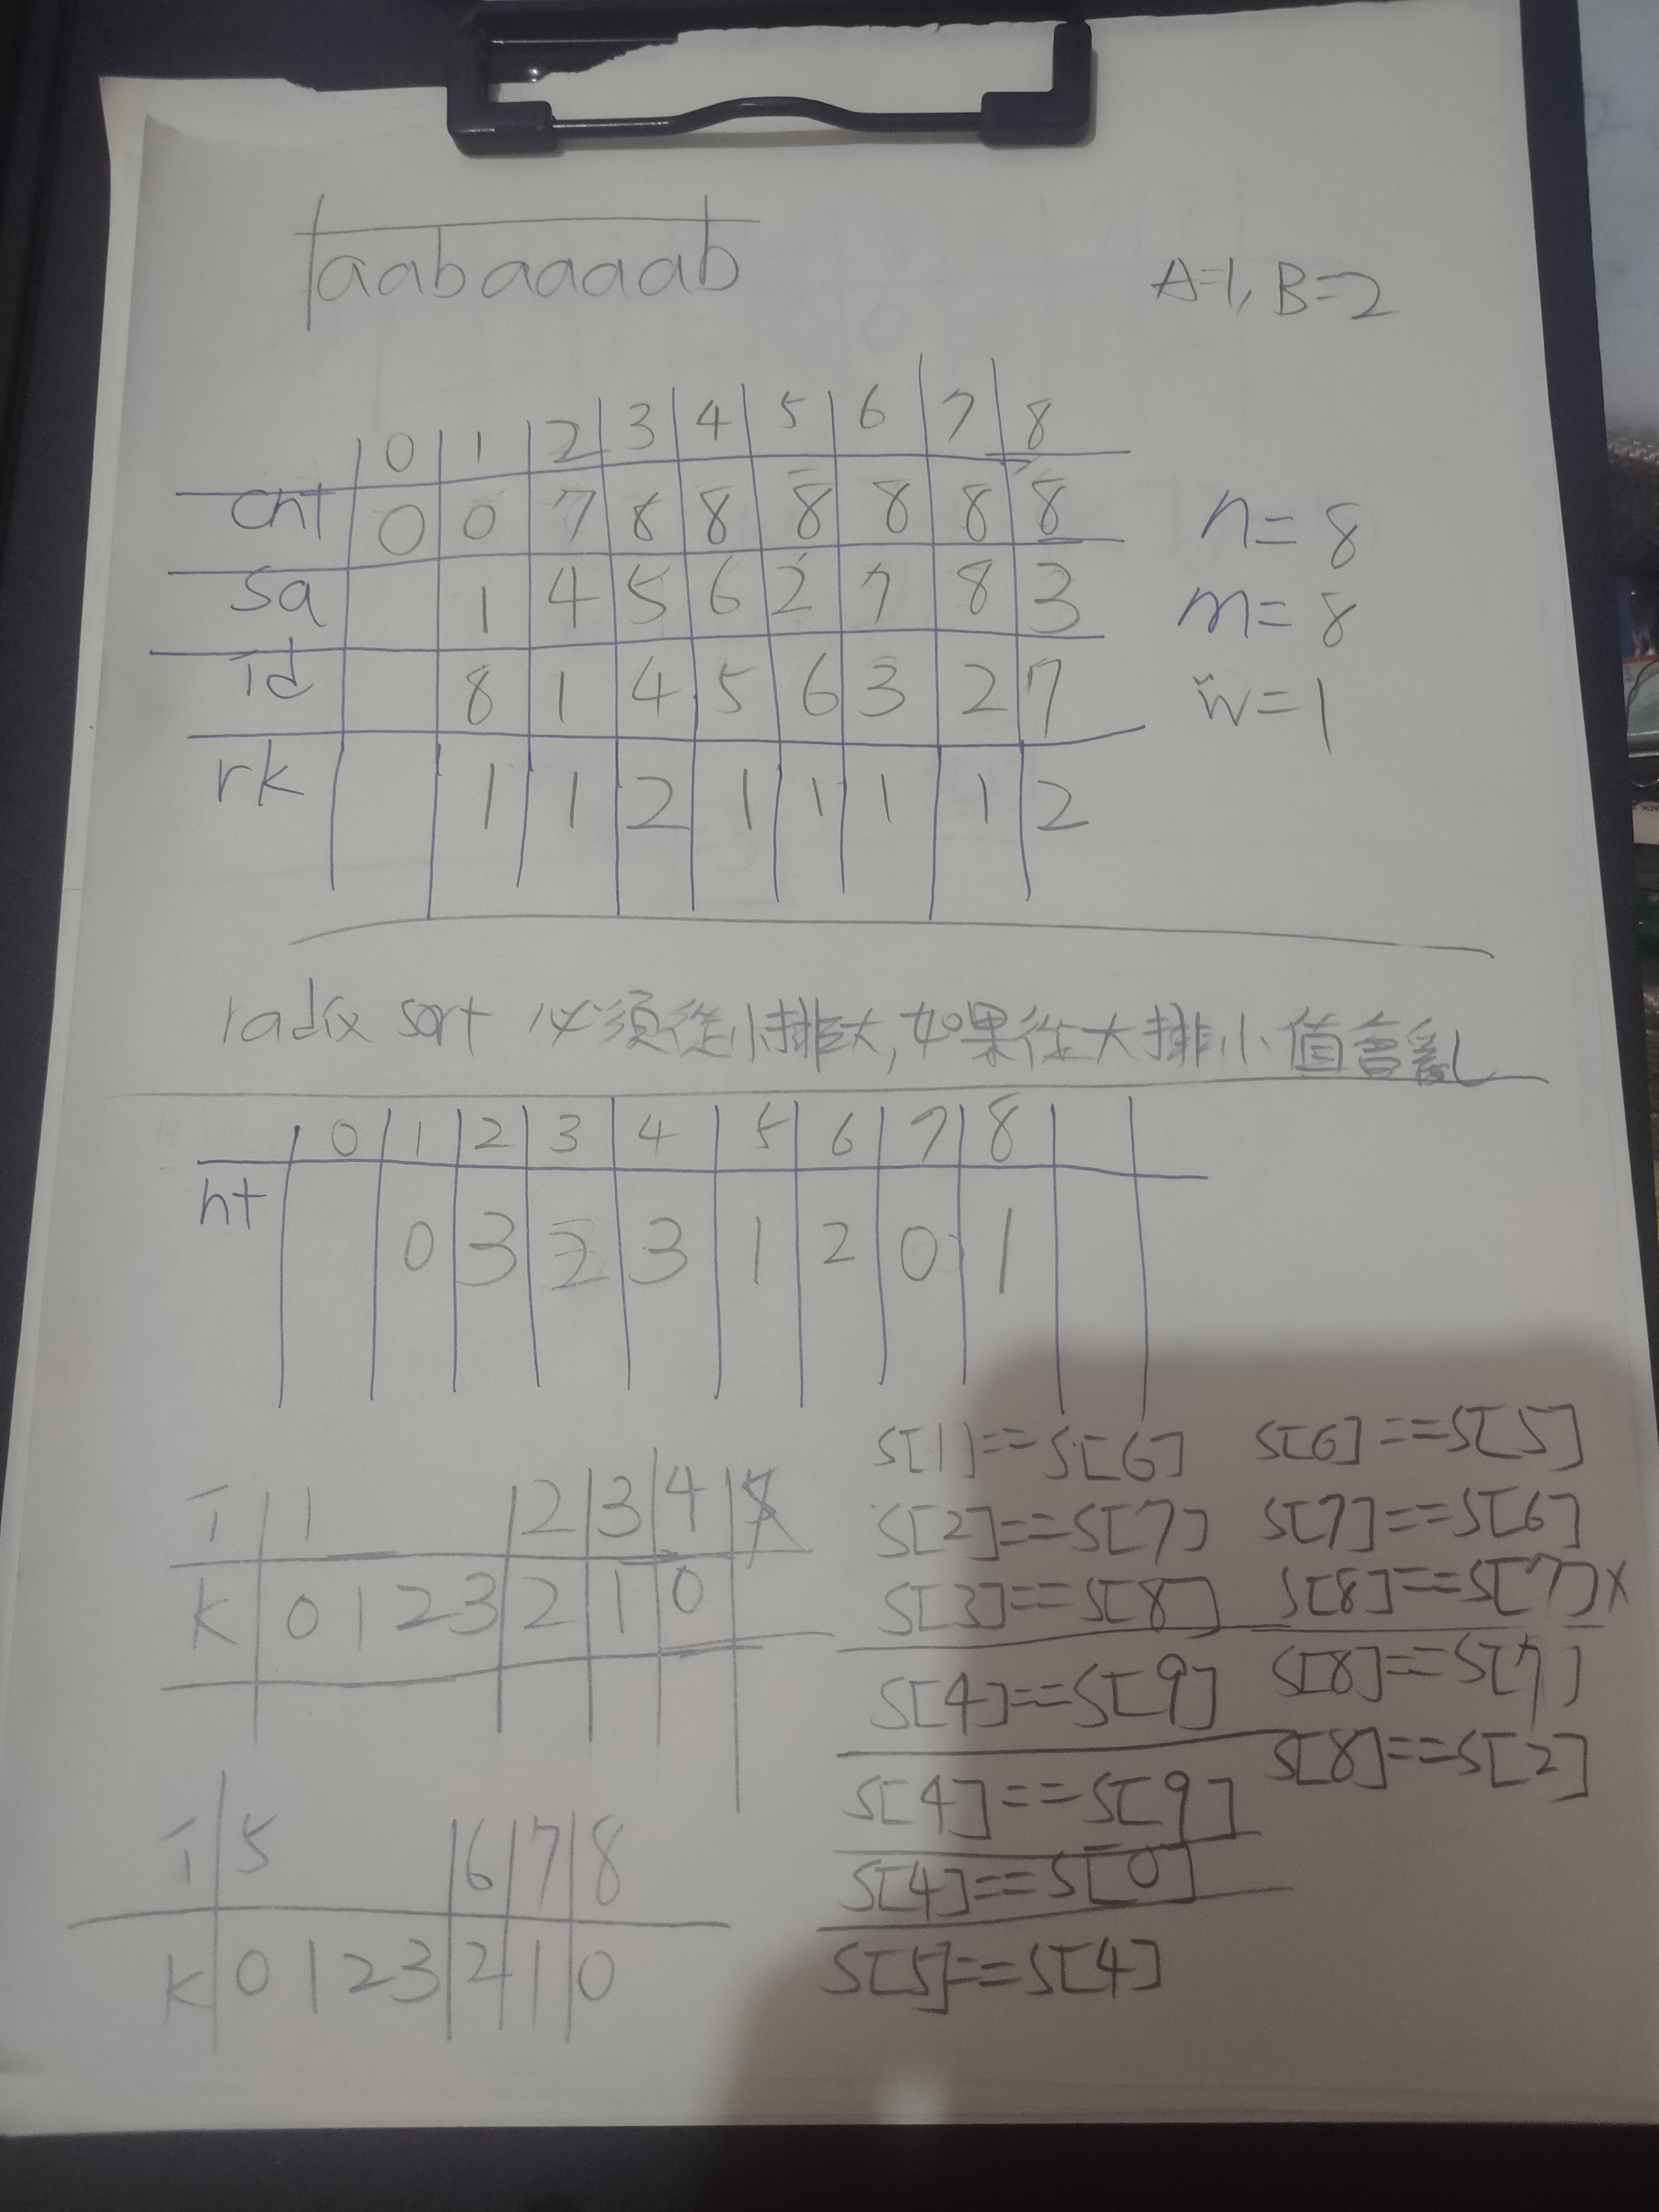 aabaaaab A=1, B=2
0 1 2 3 4 5 6 7 8
cnt 0 0 7 8 8 8 8 8 8 n=8
sa 1 4 5 6 2 7 8 3 m=8
id 8 1 4 5 6 3 2 7 w=1
rk 1 1 2 1 1 1 1 2
radix sort 必須從小排大,如果從大排小值會亂
0 1 2 3 4 5 6 7 8
ht 0 3 2 3 1 2 0 1
i 1 2 3 4
k 0 1 2 3 2 1 0
i 5 6 7 8
k 0 1 2 3 2 1 0
S[1]==S[6]
S[2]==S[7]
S[3]==S[8]
S[4]==S[9]
S[4]==S[9]
S[4]==S[0]
S[5]==S[4]
S[6]==S[5]
S[7]==S[6]
S[8]==S[7]x
S[8]==S[7]
S[8]==S[2]